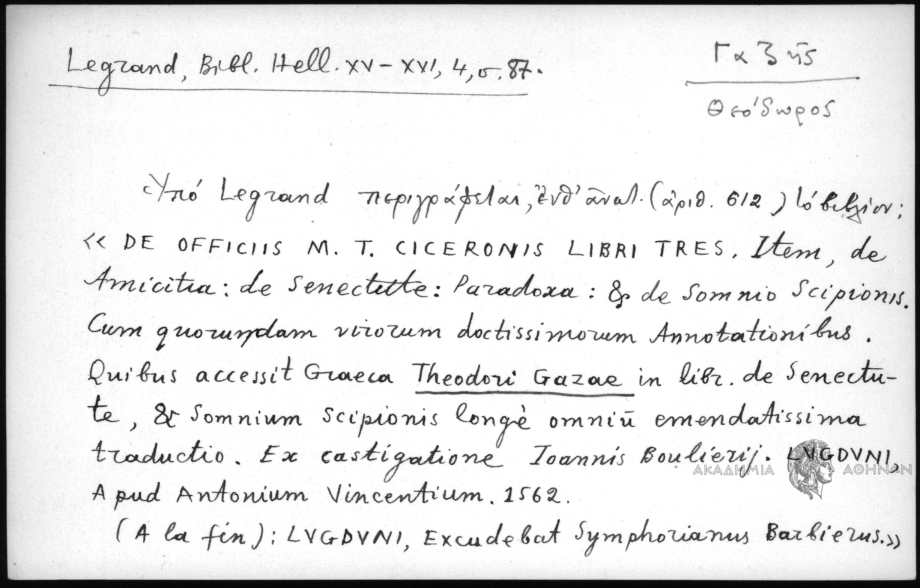 Legrand, Bibl. Hell. XV-XVI, 4, σ. 87.
Γαζῆς
Θεόδωρος
Ὑπό Legrand περιγράφεται, ἐνθ' ἀνωτ. (ἀριθ. 612) τό βιβλίον:
« DE OFFICIIS M. T. CICERONIS LIBRI TRES. Item, de
Amicitia: de Senectute: Paradoxa: & de Somnio Scipionis.
Cum quorumdam virorum doctissimorum Annotationibus.
Quibus accessit Graeca Theodori Gazae in libr. de Senectu-
te, & Somnium Scipionis longè omniū emendatissima
traductio. Ex castigatione Ioannis Boulierij. LVGDVNI,
ΑΚΑΔΗΜΙΑ ΑΘΗΝΩΝ
Apud Antonium Vincentium. 1562.
(A la fin): LVGDVNI, Excudebat Symphorianus Barbierus.»